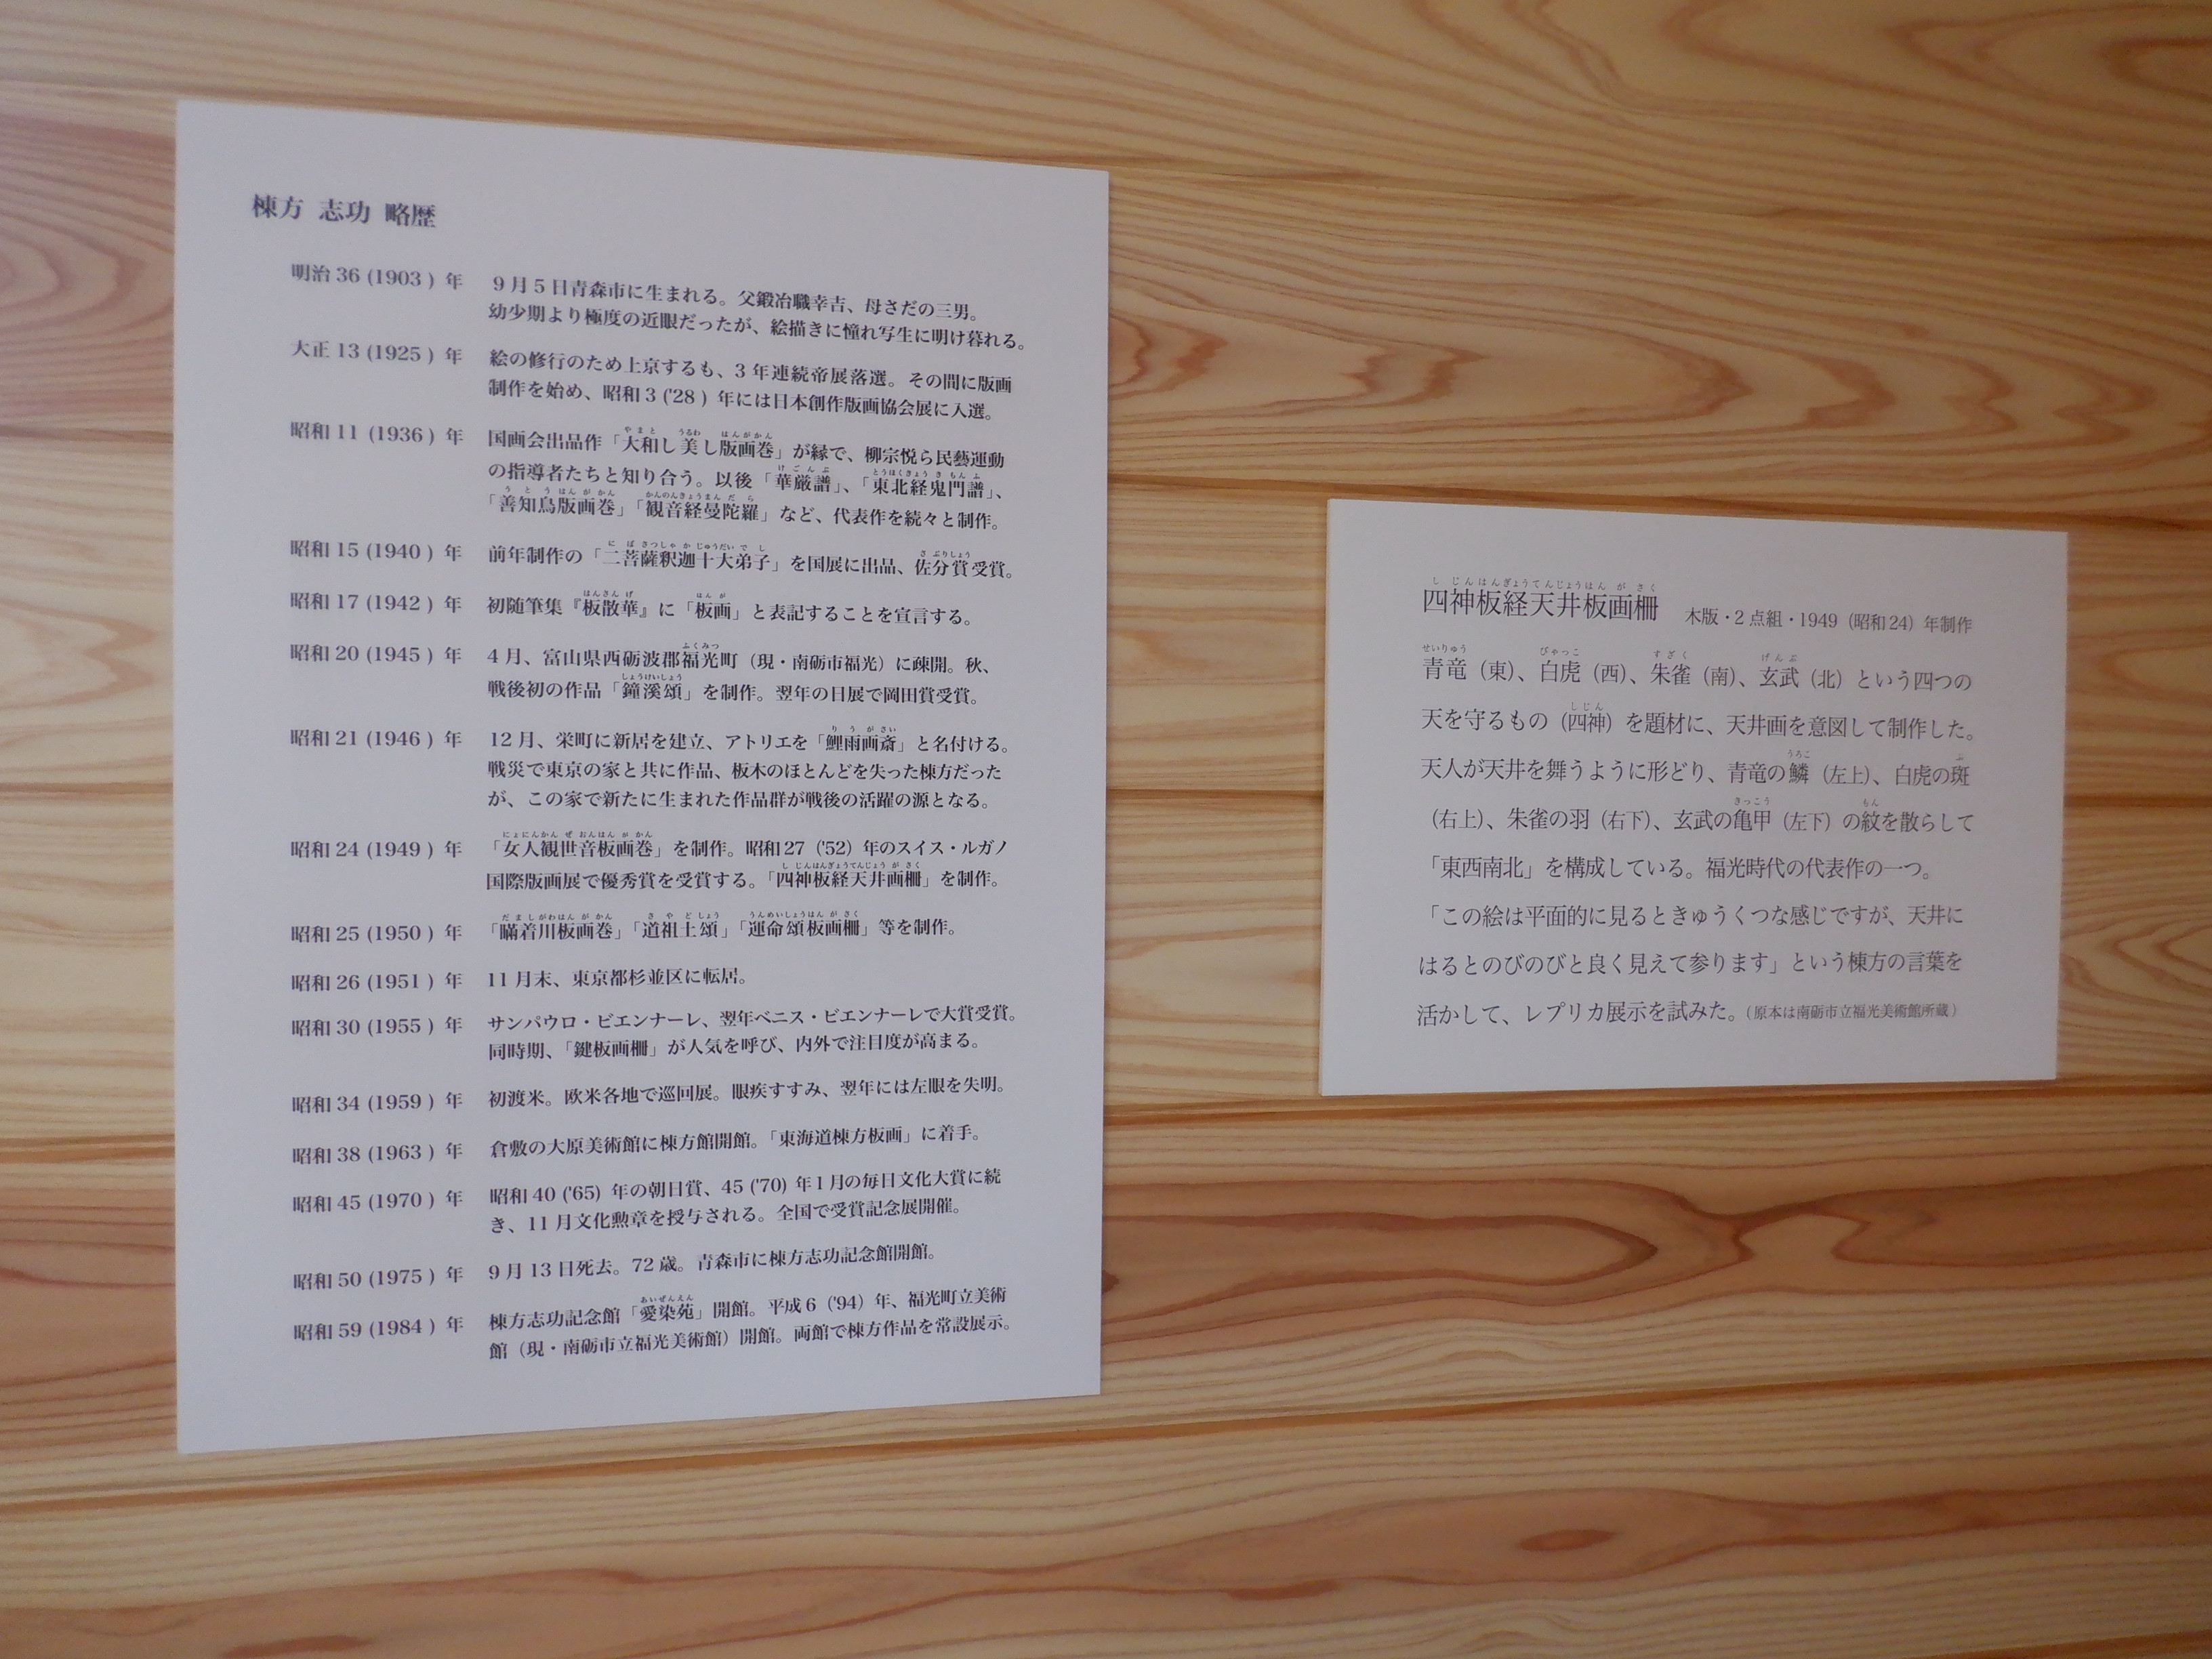 棟方 志功 略歴
明治 36 (1903 ) 年 9 月 5 日青森市に生まれる。父鍛冶職幸吉、母さだの三男。
幼少期より極度の近眼だったが、絵描きに憧れ写生に明け暮れる。
大正 13 (1925 ) 年 絵の修行のため上京するも、3 年連続帝展落選。その間に版画
制作を始め、昭和 3 ('28 ) 年には日本創作版画協会展に入選。
昭和 11 (1936 ) 年 国画会出品作「大和し美し版画巻」が縁で、柳宗悦ら民藝運動
の指導者たちと知り合う。以後「華厳譜」、「東北経鬼門譜」、
「善知鳥版画巻」「観音経曼陀羅」など、代表作を続々と制作。
昭和 15 (1940 ) 年 前年制作の「二菩薩釈迦十大弟子」を国展に出品、佐分賞受賞。
昭和 17 (1942 ) 年 初随筆集『板散華』に「板画」と表記することを宣言する。
昭和 20 (1945 ) 年 4 月、富山県西砺波郡福光町（現・南砺市福光）に疎開。秋、
戦後初の作品「鐘溪頌」を制作。翌年の日展で岡田賞受賞。
昭和 21 (1946 ) 年 12 月、栄町に新居を建立、アトリエを「鯉雨画斎」と名付ける。
戦災で東京の家と共に作品、板木のほとんどを失った棟方だった
が、この家で新たに生まれた作品群が戦後の活躍の源となる。
昭和 24 (1949 ) 年 「女人観世音板画巻」を制作。昭和27（'52）年のスイス・ルガノ
国際版画展で優秀賞を受賞する。「四神板経天井画柵」を制作。
昭和 25 (1950 ) 年 「瞞着川板画巻」「道祖土頌」「運命頌板画柵」等を制作。
昭和 26 (1951 ) 年 11 月末、東京都杉並区に転居。
昭和 30 (1955 ) 年 サンパウロ・ビエンナーレ、翌年ベニス・ビエンナーレで大賞受賞。
同時期、「鍵板画柵」が人気を呼び、内外で注目度が高まる。
昭和 34 (1959 ) 年 初渡米。欧米各地で巡回展。眼疾すすみ、翌年には左眼を失明。
昭和 38 (1963 ) 年 倉敷の大原美術館に棟方館開館。「東海道棟方板画」に着手。
昭和 45 (1970 ) 年 昭和 40 ('65) 年の朝日賞、45 ('70) 年1月の毎日文化大賞に続
き、11 月文化勲章を授与される。全国で受賞記念展開催。
昭和 50 (1975 ) 年 9 月 13 日死去。72 歳。青森市に棟方志功記念館開館。
昭和 59 (1984 ) 年 棟方志功記念館「愛染苑」開館。平成 6（'94）年、福光町立美術
館（現・南砺市立福光美術館）開館。両館で棟方作品を常設展示。
四神板経天井板画柵 木版・2 点組・1949（昭和24）年制作
青竜（東）、白虎（西）、朱雀（南）、玄武（北）という四つの
天を守るもの（四神）を題材に、天井画を意図して制作した。
天人が天井を舞うように形どり、青竜の鱗（左上）、白虎の斑
（右上）、朱雀の羽（右下）、玄武の亀甲（左下）の紋を散らして
「東西南北」を構成している。福光時代の代表作の一つ。
「この絵は平面的に見るときゅうくつな感じですが、天井に
はるとのびのびと良く見えて参ります」という棟方の言葉を
活かして、レプリカ展示を試みた。（原本は南砺市立福光美術館所蔵）